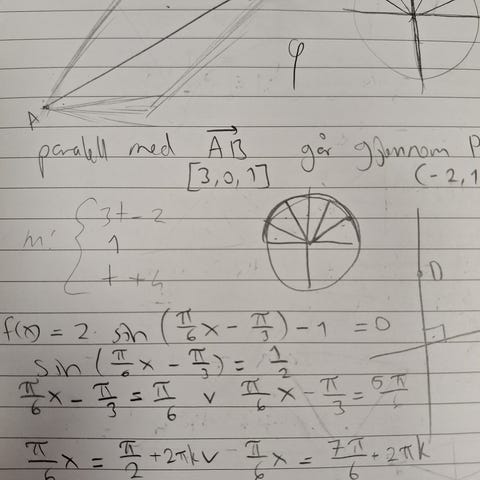 φ
A
parallell med AB⃗ går gjennom P
[3,0,1] (-2,1
m: { 3t-2
1
t+4
D
f(x) = 2 · sin (π/6 x - π/3) - 1 = 0
sin (π/6 x - π/3) = 1/2
π/6 x - π/3 = π/6 v π/6 x - π/3 = 5π/
π/6 x = π/2 + 2πk v π/6 x = 7π/6 + 2πk